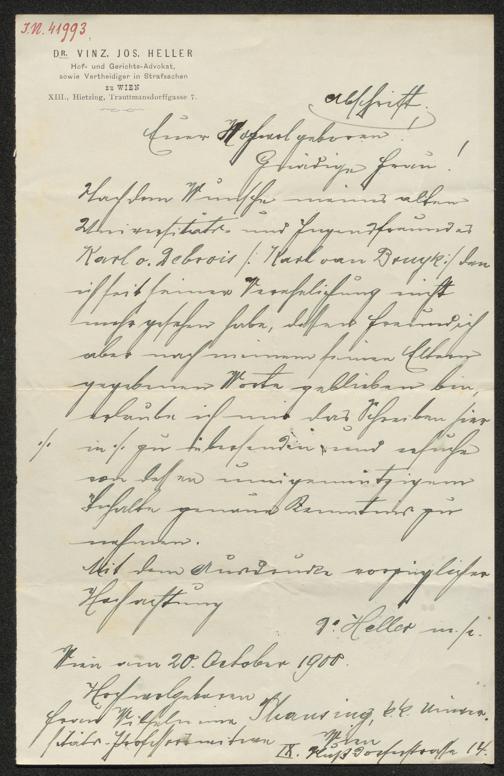 I.N. 41993
DR. VINZ. JOS. HELLER
Hof- und Gerichts-Advokat,
sowie Vertheidiger in Strafsachen
zu WIEN
XIII., Hietzing, Trauttmansdorffgasse 7.
Abschrift.
Euer Hochwolgeboren!
Gnädige Frau!
Nach dem Wunsche meines alten
Universitäts- und Jugendfreundes
Karl v. Debrois /: Karl van Bruyk :/ den
ich seit seiner Verehelichung nicht
mehr gesehen habe, dessen Freund ich
aber nach meinem seinen Eltern
gegebenen Worte geblieben bin,
erlaube ich mir das Schreiben hier
./. in ./. zu übersenden und ersuche
von dessen uneigennützigem
Inhalte genaue Kenntnis zu
nehmen.
Mit dem Ausdrucke vorzüglicher
Hochachtung
Dr. Heller m.p.
Wien am 20. October 1900.
Hochwolgeboren
Frau Wilhelmine Thausing, k.k. Univer-
sitäts-Professorswitwe Wien
IX. Nußdorferstrasse 14.